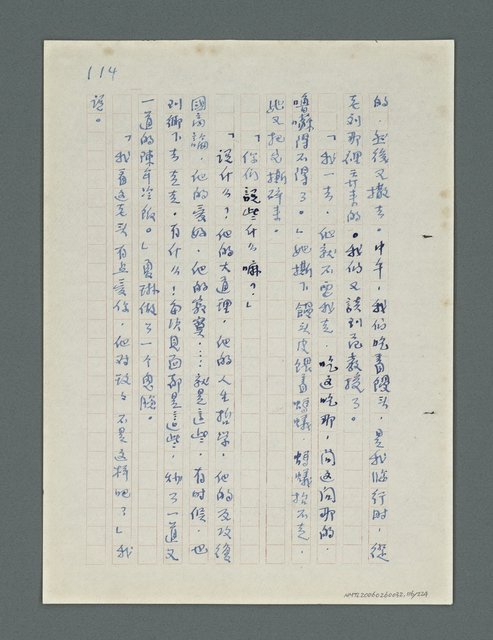 114
的．然後又撒去。中午，我们吃着饅头，是我临行时，從
老刘那裡弄来的。我们又談到范教授了。
「我一去，他就不要我走．吃这吃那，问这问那的．
嚕囌得不得了。」她撕下饅头皮餵着螞蟻．螞蟻抬不走．
她又把它撕碎来。
「你们說些什么嘛？」
「說什么？他的大道理，他的人生哲学，他的反攻復
國高論．他的爱好．他的寂寞……就是這些．有时候．也
到鄉下去走走。有什么！每次見面都是這些，炒了一道又
一道的陳年冷飯。」夏琳做了一个恩臉。
「我看这老头有点爱你．他对    不是这样吧？」我
說。
NMTL20060260032.116/224